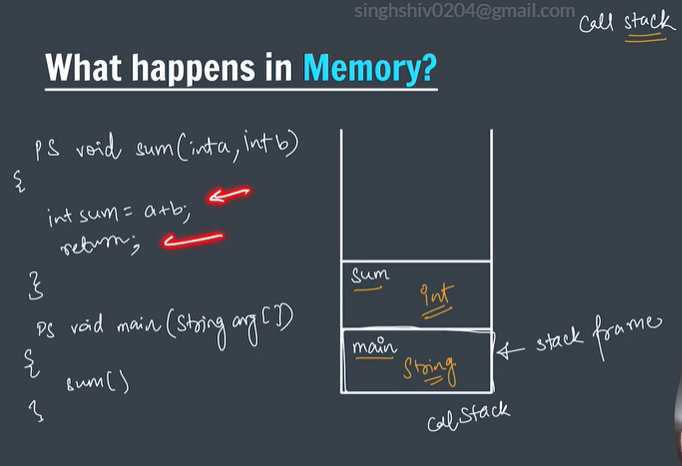 singhshiv0204@gmail.com
Call stack
What happens in Memory?
PS void sum(int a, int b)
{
int sum = a+b;
return;
}
PS void main(String arg[])
{
sum()
}
sum
int
main
String
stack frame
Call Stack